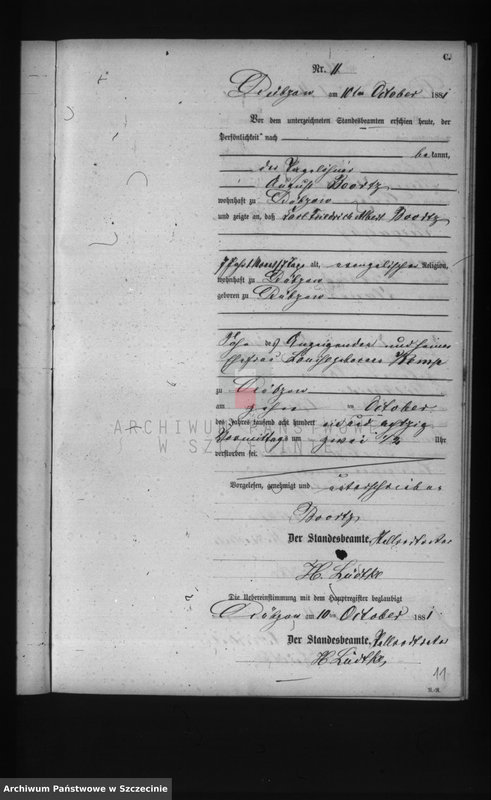 C.
Nr. 11
Drübzow am 10ten October 1881
Vor dem unterzeichneten Standesbeamten erschien heute, der
Persönlichkeit nach
bekannt,
der Tagelöhner
August Boortz
wohnhaft zu Drübzow
und zeigte an, daß Carl Friedrich Albert Boortz
7 Tage alt, evangelischer Religion,
wohnhaft zu Drübzow
geboren zu Drübzow
Sohn des Anzeigenden und seiner
Ehefrau geborenen
zu Drübzow
am zehn October
des Jahres tausend acht hundert ein und achtzig
Vormittags um zwei 1/2 Uhr
verstorben sei.
Vorgelesen, genehmigt und unterschrieben
Boortz
Der Standesbeamte,
H. Lüdtke
Die Uebereinstimmung mit dem Hauptregister beglaubigt
Drübzow am 10ten October 1881.
Der Standesbeamte,
H. Lüdtke,
11
ARCHIWUM PAŃSTWOWE
W SZCZECINIE
Archiwum Państwowe w Szczecinie